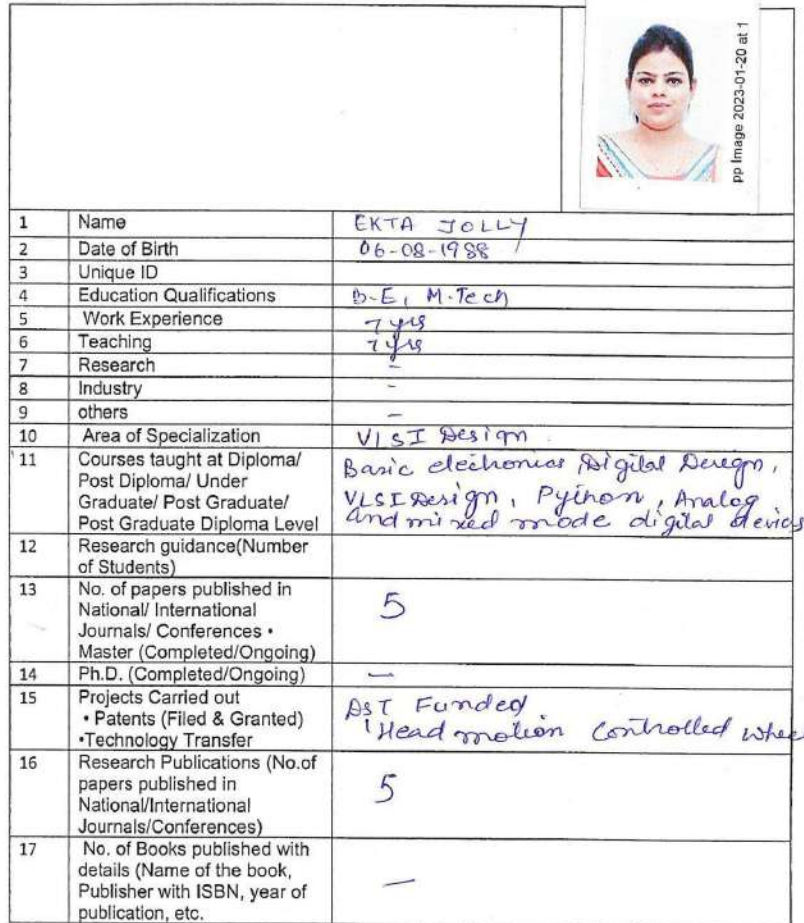 pp Image 2023-01-20 at 1
1 Name EKTA JOLLY
2 Date of Birth 06-08-1988
3 Unique ID
4 Education Qualifications B.E, M.Tech
5 Work Experience 7 yrs
6 Teaching 7 yrs
7 Research -
8 Industry -
9 others -
10 Area of Specialization VLSI Design
11 Courses taught at Diploma/ Basic electronics, Digital Design,
Post Diploma/ Under
Graduate/ Post Graduate/ VLSI Design, Python, Analog
Post Graduate Diploma Level and mixed mode digital devices
12 Research guidance(Number
of Students)
13 No. of papers published in
National/ International 5
Journals/ Conferences •
Master (Completed/Ongoing)
14 Ph.D. (Completed/Ongoing) -
15 Projects Carried out DST Funded
• Patents (Filed & Granted) 'Head motion controlled whee
•Technology Transfer
16 Research Publications (No.of
papers published in 5
National/International
Journals/Conferences)
17 No. of Books published with
details (Name of the book,
Publisher with ISBN, year of -
publication, etc.